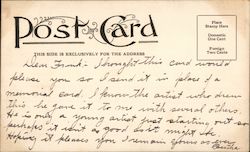 Post Card
Place
Stamp Here
Domestic
One Cent
Foreign
Two Cents
THIS SIDE IS EXCLUSIVELY FOR THE ADDRESS
Dear Frank:- I thought this card would
please you so I send it in place of a
memorial card. I know the artist who drew
this he gave it to me with several others
He is only a young artist just starting out so
perhaps it isn't as good as it might be.
Hoping it please you I remain yours as ever